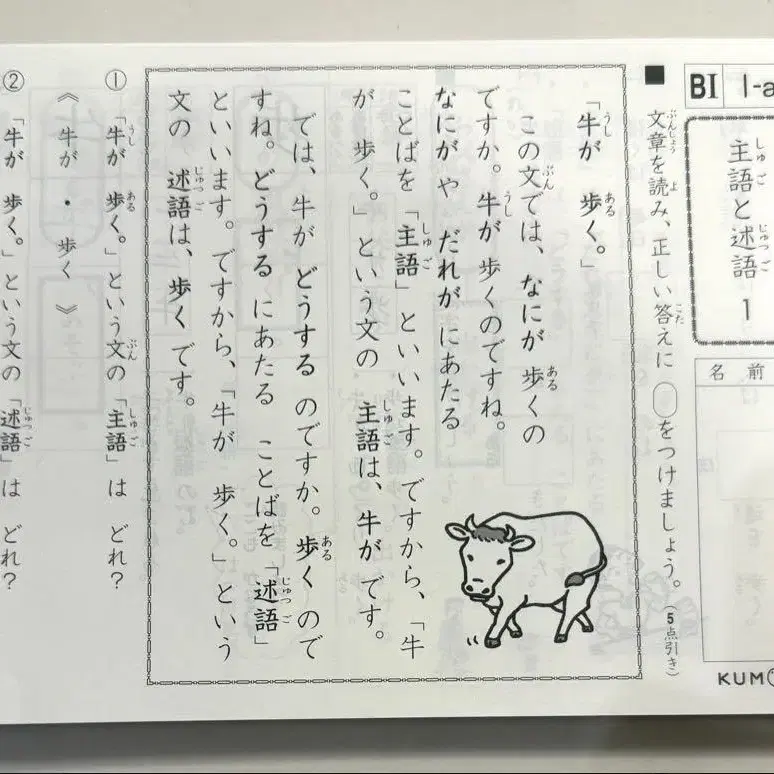 BI 1-a
主語と述語 1
名前
KUM
■ 文章を読み、正しい答えに ○をつけましょう。(5点引き)
「牛が 歩く。」
この文では、なにが 歩くの
ですか。牛が 歩くのですね。
なにがや だれが にあたる
ことばを 「主語」 といいます。ですから、「牛
が 歩く。」という文の 主語は、牛が です。
では、牛が どうする のですか。歩く ので
すね。どうする にあたる ことばを 「述語」
といいます。ですから、「牛が 歩く。」という
文の 述語は、歩く です。
① 「牛が 歩く。」という文の 「主語」は どれ?
《 牛が ・ 歩く 》
② 「牛が 歩く。」という文の 「述語」は どれ?